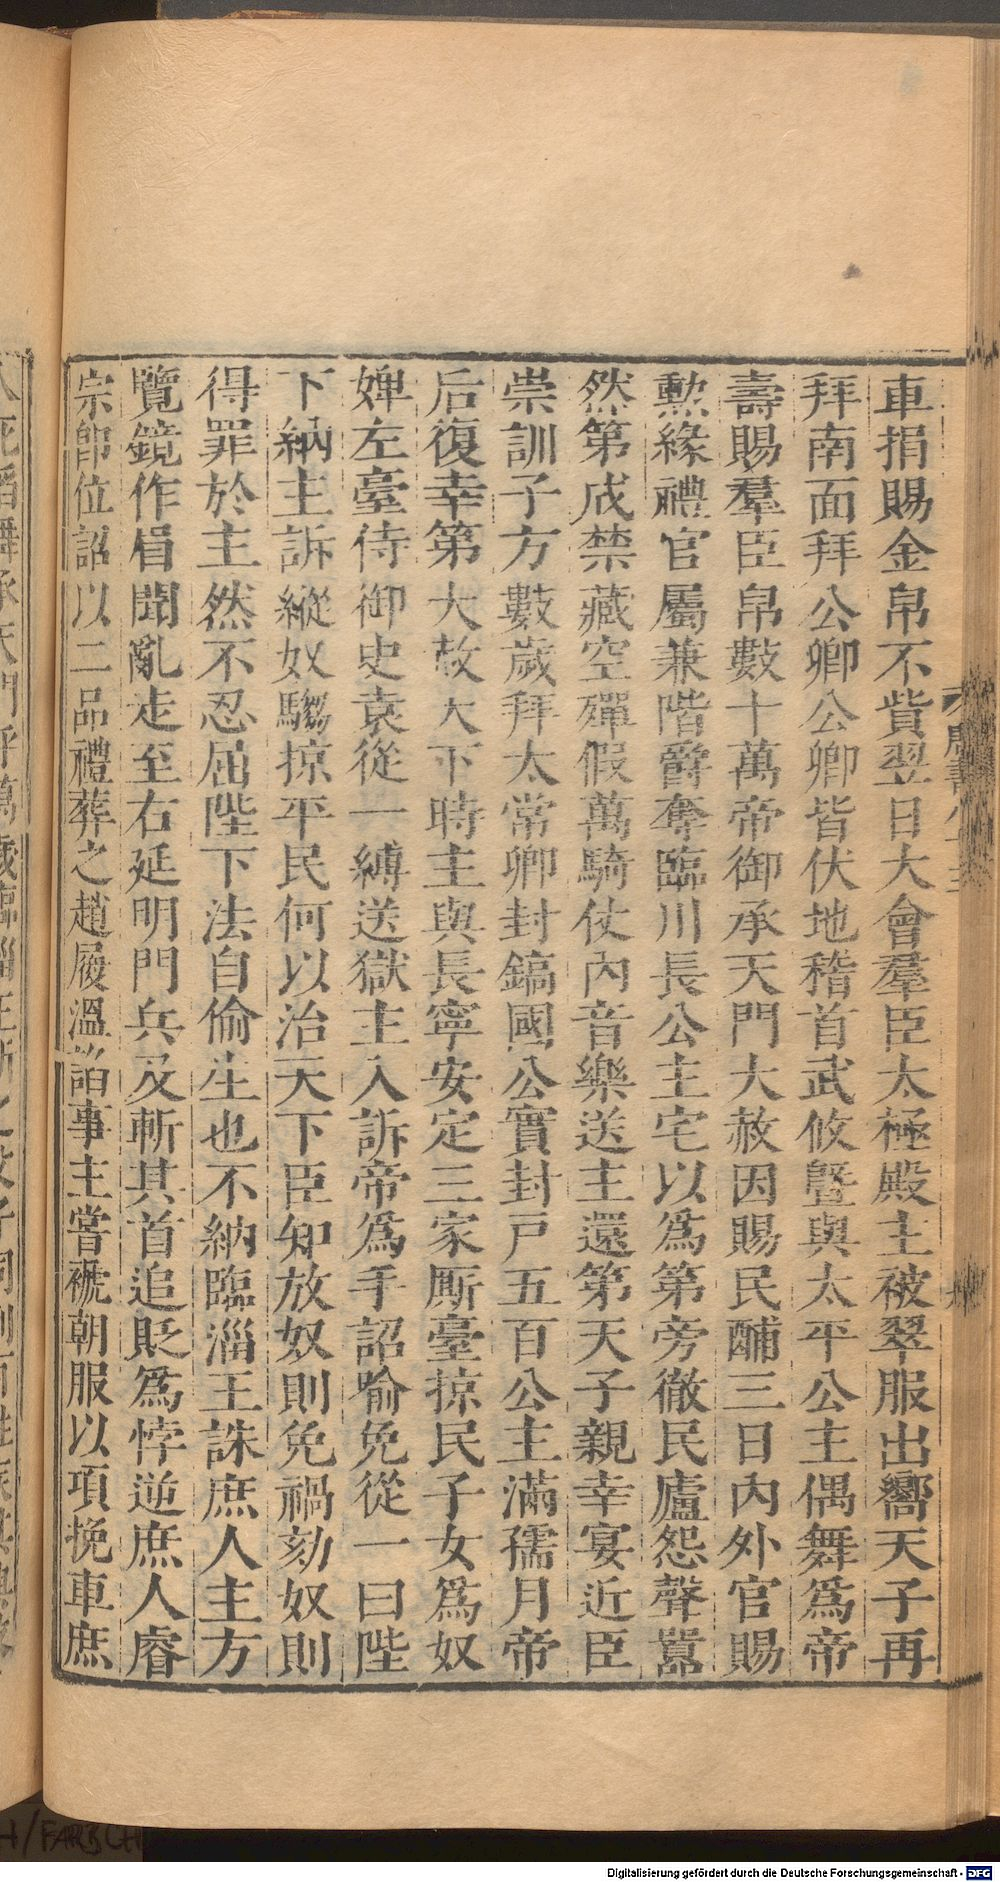 車捐賜金帛不貲翌日大會羣臣太極殿主被翠服出嚮天子再
拜南面拜公卿公卿皆伏地稽首武攸曁與太平公主偶舞爲帝
壽賜羣臣帛數十萬帝御承天門大赦因賜民酺三日內外官賜
勲緣禮官屬兼階爵奪臨川長公主宅以爲第旁徹民廬怨聲囂
然第成禁藏空殫假萬騎仗內音樂送主還第天子親幸宴近臣
崇訓子方數歲拜太常卿封鎬國公實封戸五百公主滿孺月帝
后復幸第大赦天下時主與長寧安定三家厮臺掠民子女爲奴
婢左臺侍御史袁從一縛送獄主入訴帝爲手詔喻免從一曰陛
下納主訴縱奴騶掠平民何以治天下臣知放奴則免禍劾奴則
得罪於主然不忍屈陛下法自偷生也不納臨淄王誅庶人主方
覽鏡作眉聞亂走至右延明門兵及斬其首追貶爲悖逆庶人睿
宗卽位詔以二品禮葬之趙履溫諂事主嘗褫朝服以項挽車庶
Digitalisierung gefördert durch die Deutsche Forschungsgemeinschaft - DFG